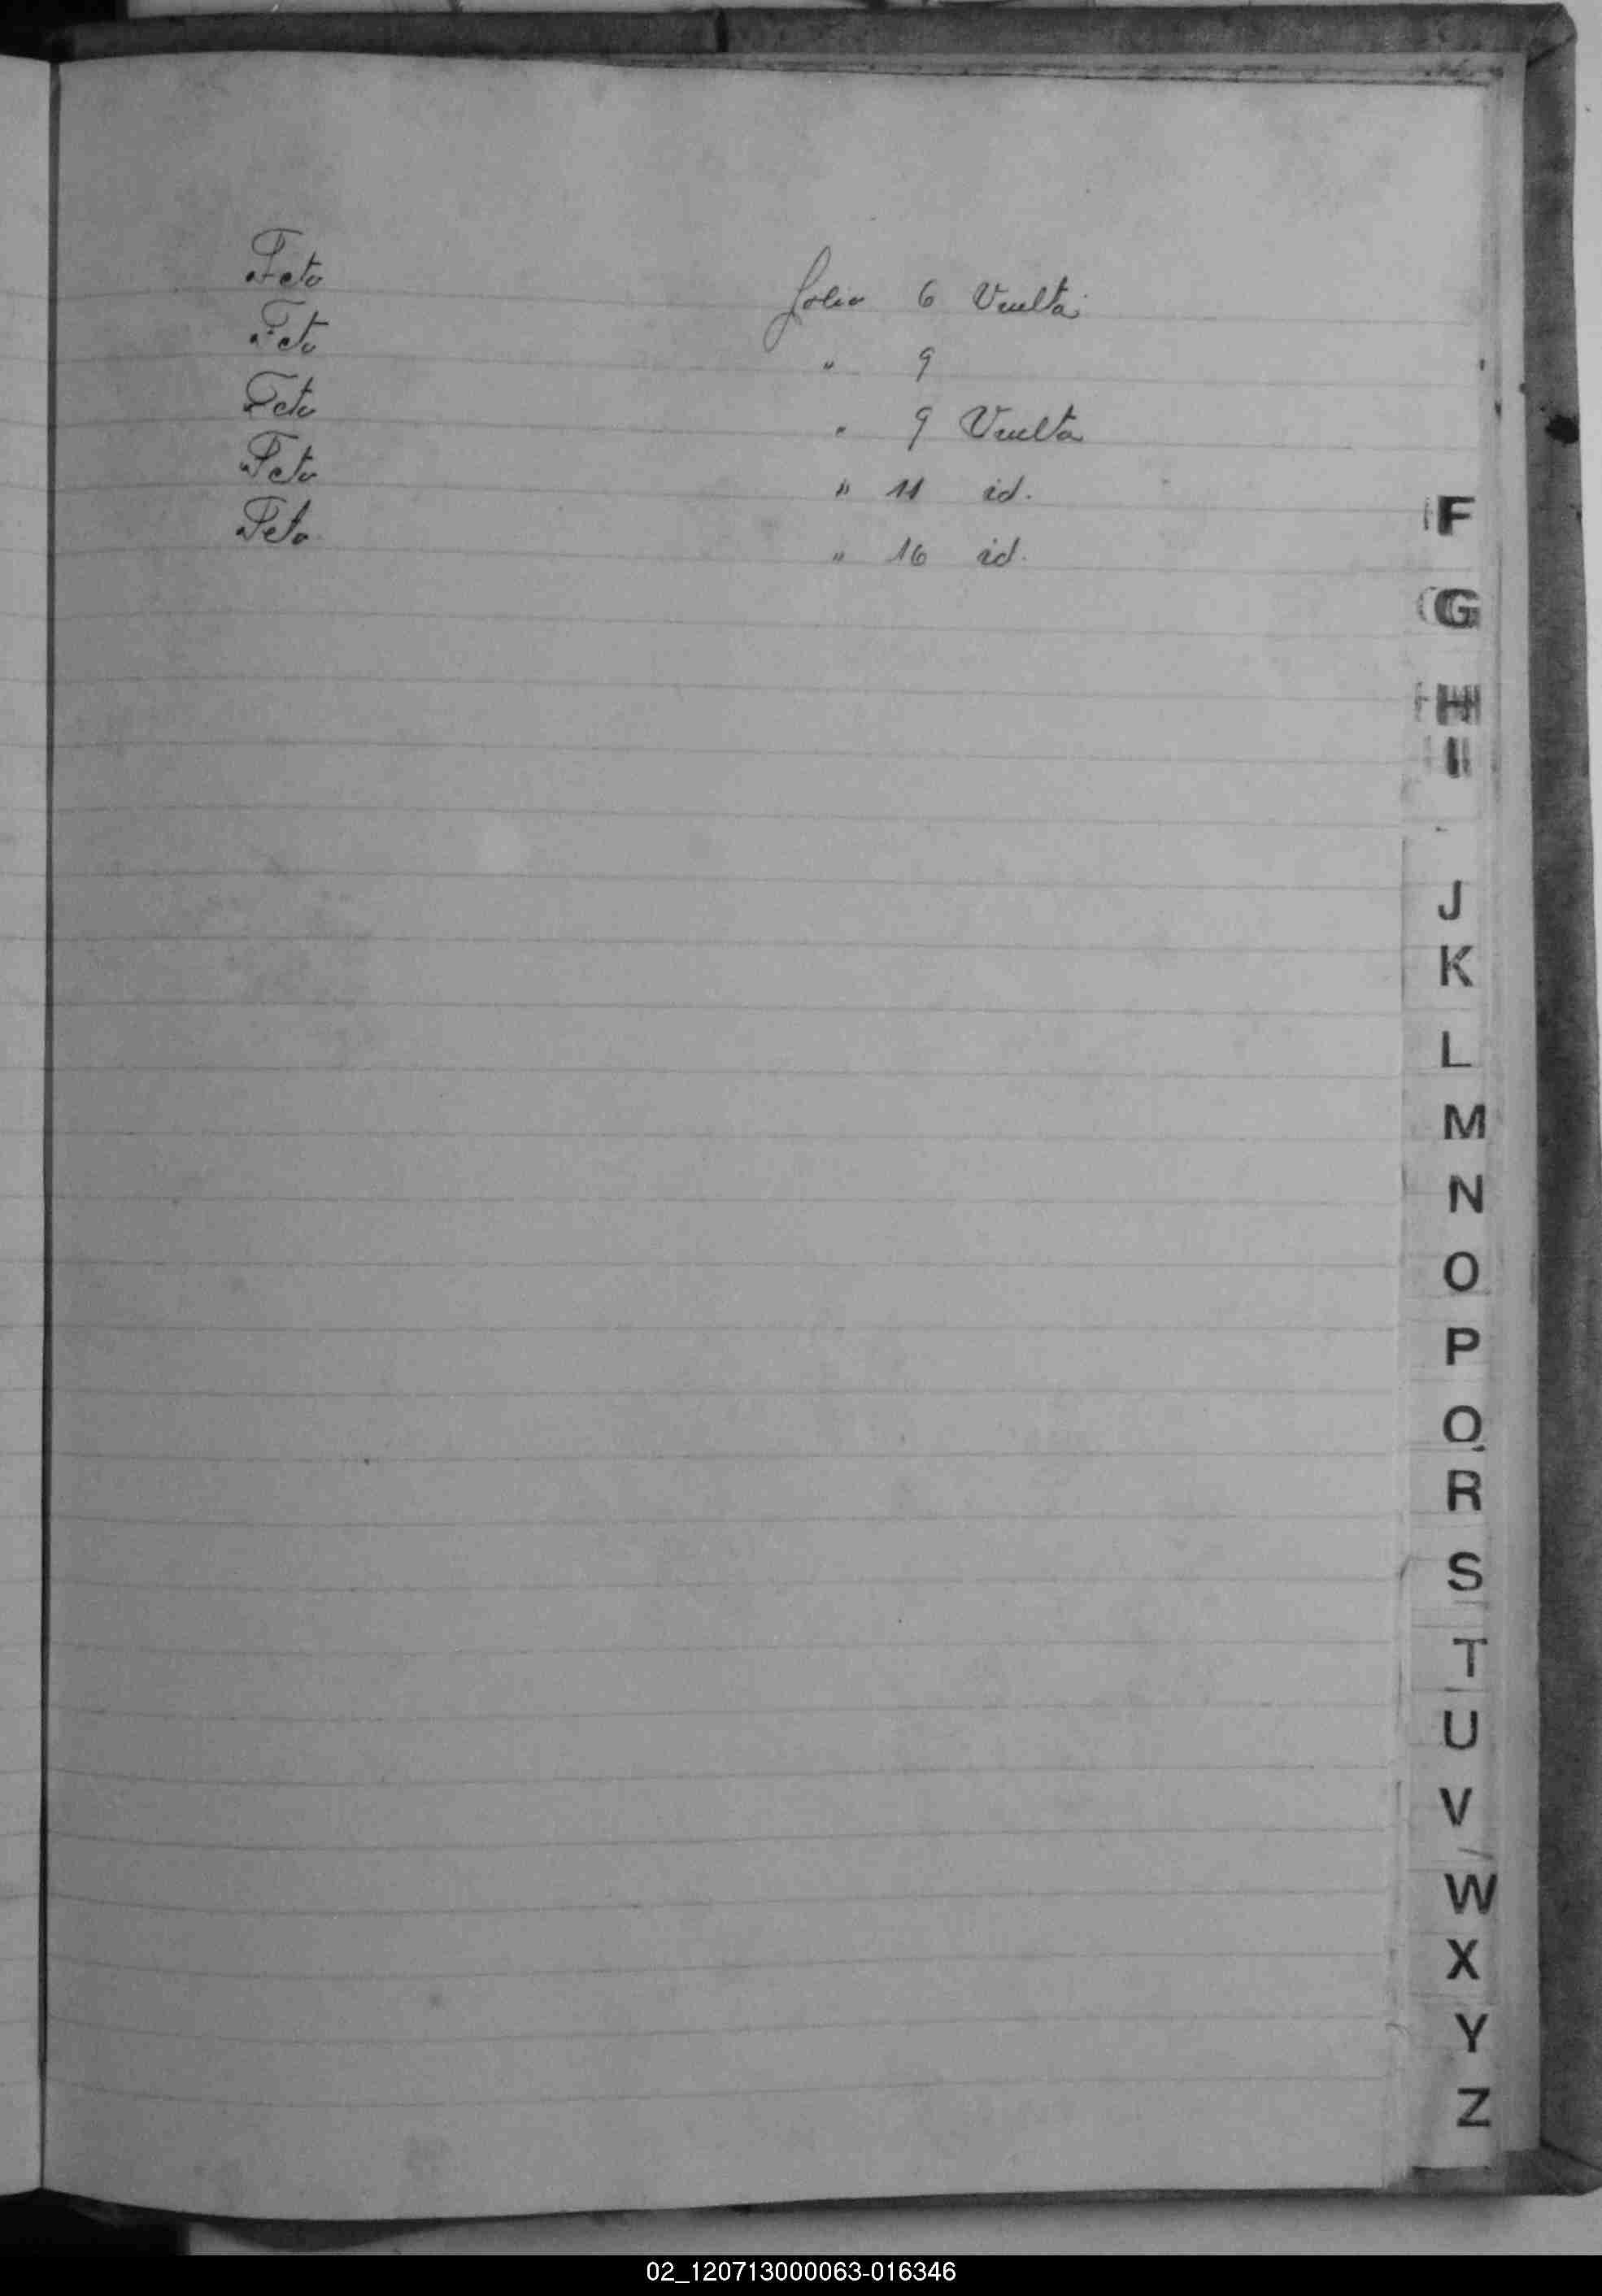 Feto folio 6 Vuelta
Feto " 9
Feto " 9 Vuelta
Feto " 11 id.
Feto " 16 id.
F
G
H
I
J
K
L
M
N
O
P
Q
R
S
T
U
V
W
X
Y
Z
02_120713000063-016346